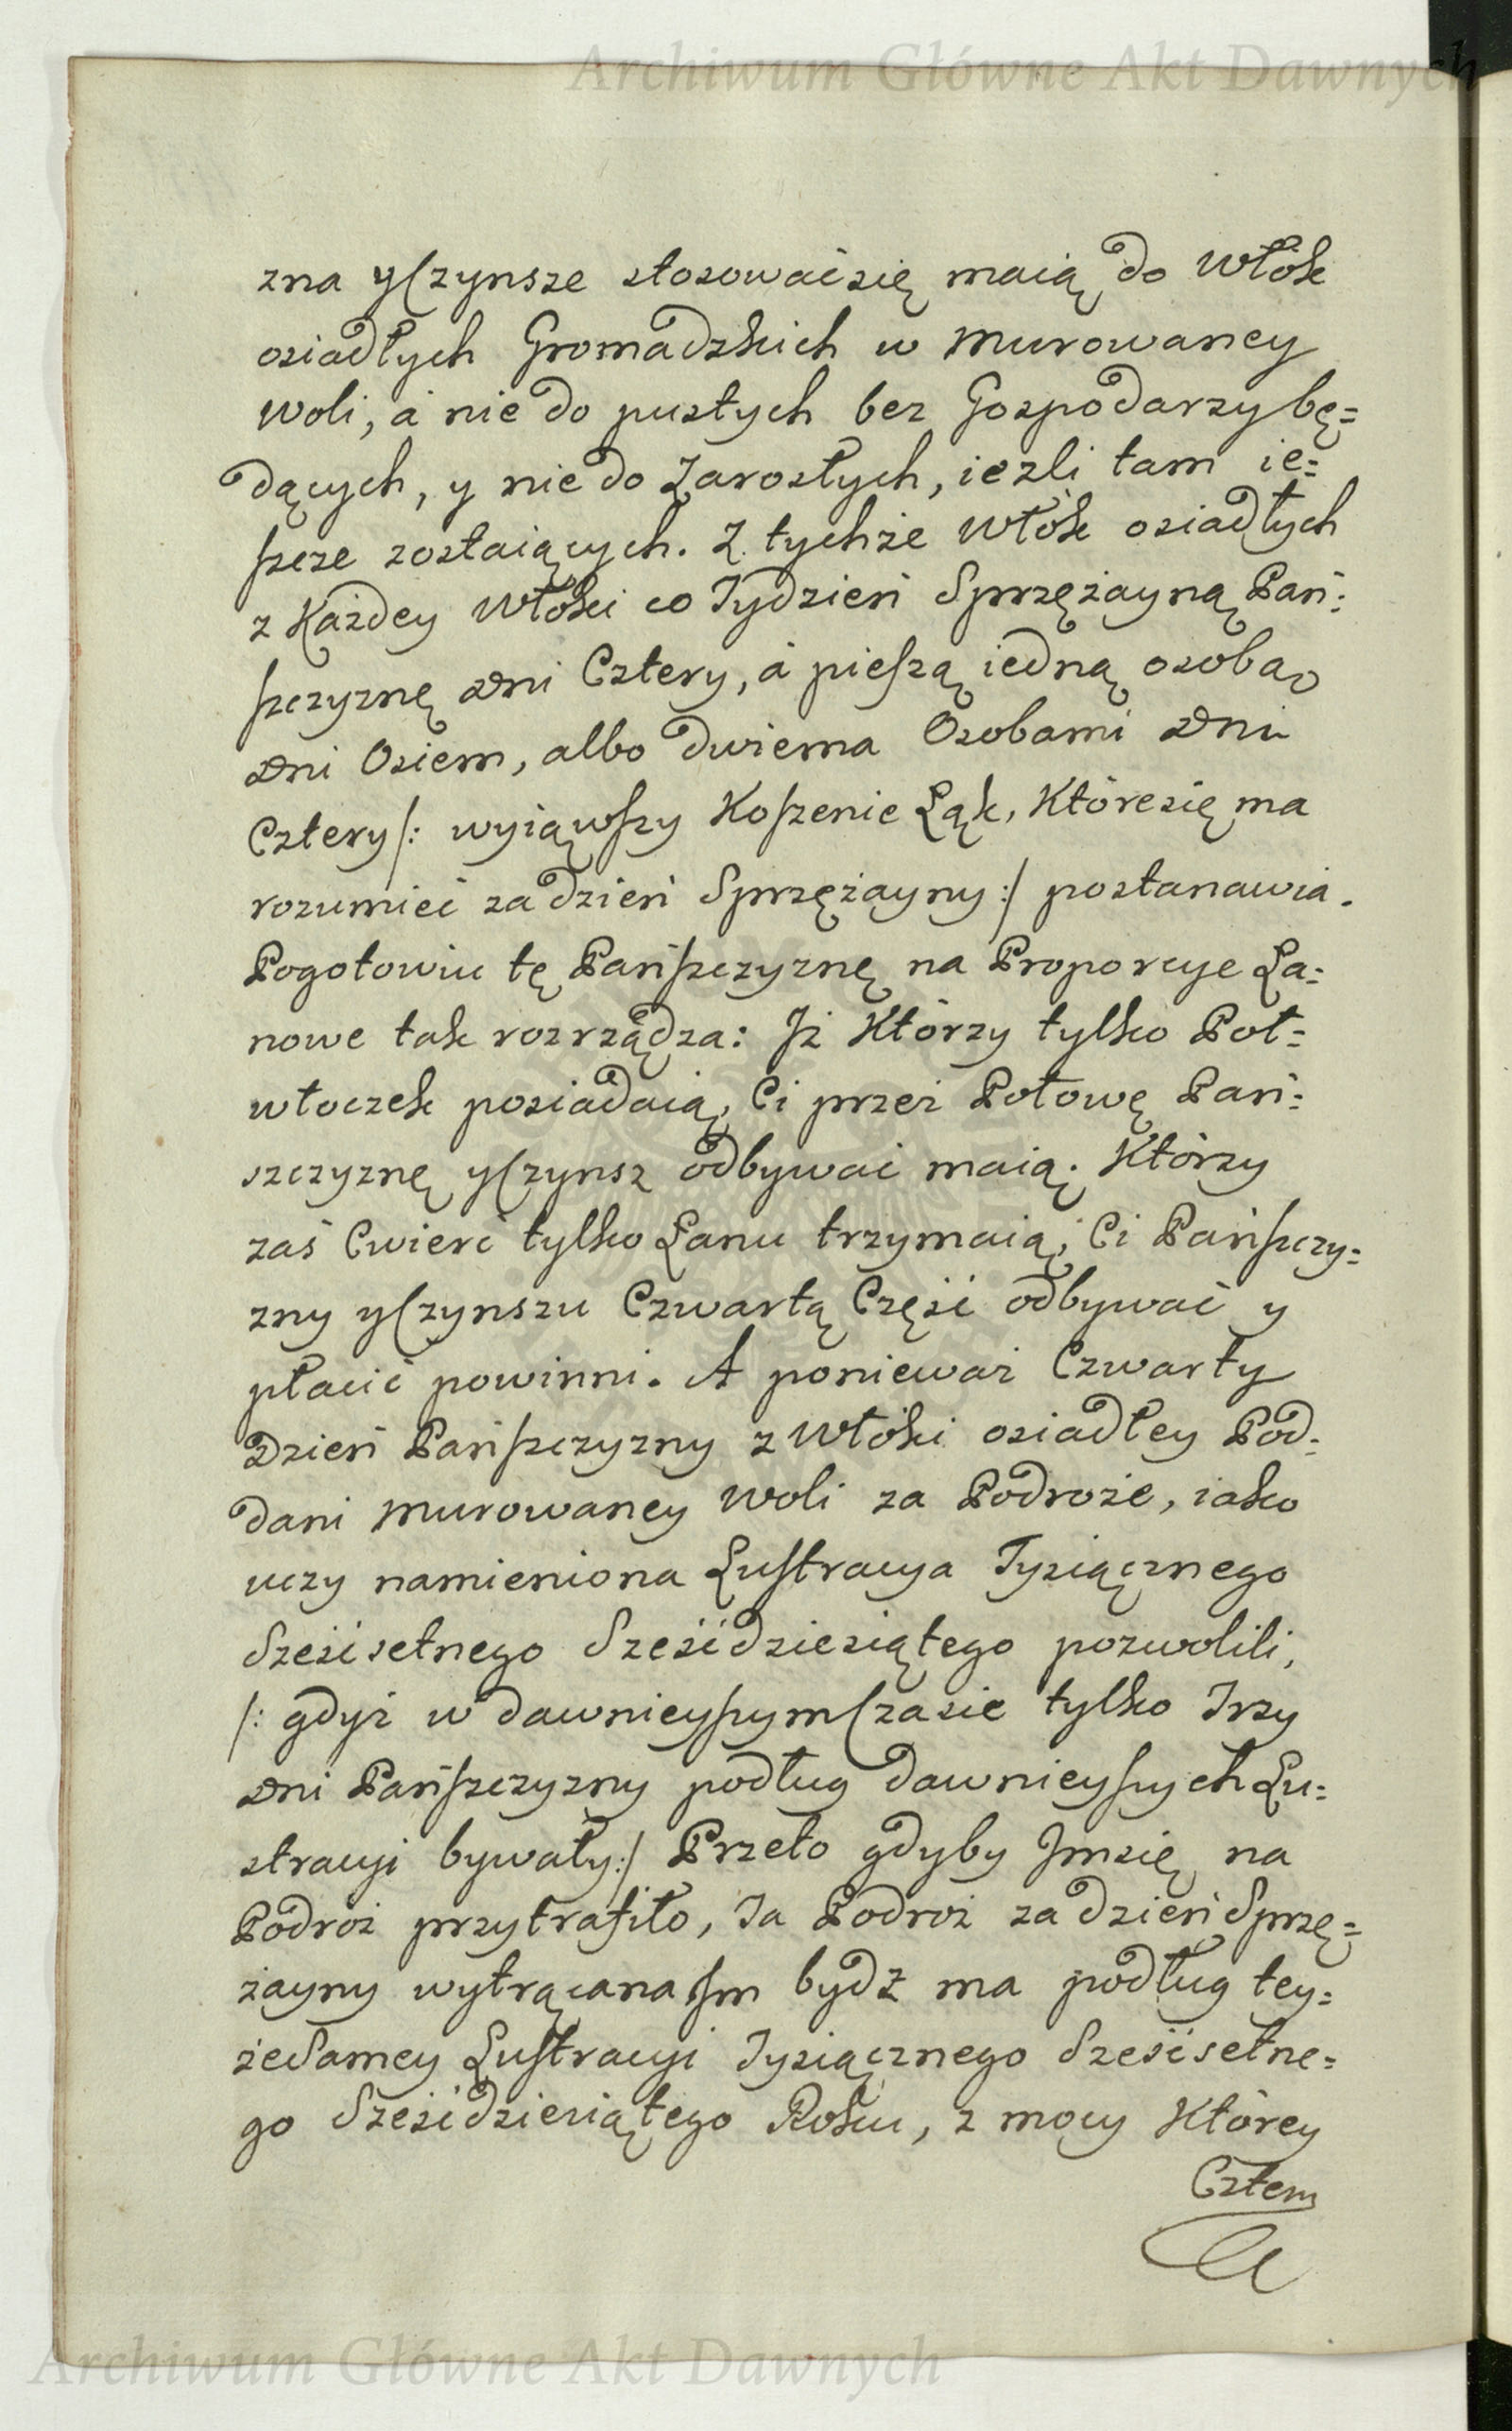 Archiwum Główne Akt Dawnych
zna y Czynsze stosować się maią do Włók
osiadłych Gromadzkich w Murowaney
Woli, á nie do pustych bez Gospodarzy bę=
dących, y nie do Zarosłych, iezli tam ie=
szcze zostaiących. Z tychże Włók osiadłych
z Każdey Włoki co Tydzień Sprzężayną Pań=
szczyznę Dni Cztery, á pieszą iedną osobą
Dni Osiem, albo dwiema Osobami Dni
Cztery /: wyiąwszy Koszenie Łąk, Które się ma
rozumieć za dzień Sprzężayny :/ postanawia.
Pogotowiu tę Pańszczyznę na Proporcye Ła=
nowe tak rozrządza: Iż Którzy tylko Poł=
włoczek posiadaią, Ci przez Połowę Pań=
szczyznę y Czynsz odbywać maią. Którzy
zaś Cwierć tylko Łanu trzymaią, Ci Pańszczy=
zny y Czynszu Czwartą Część odbywać y
płacić powinni. A ponieważ Czwarty
Dzień Pańszczyzny z Włóki osiadłey Pod=
dani Murowaney Woli za Podroże, iako
uczy namieniona Lustracya Tysiącznego
Sześćsetnego Sześćdziesiątego pozwolili,
/: gdyż w dawnieyszym Czasie tylko Trzy
Dni Pańszczyzny podług dawnieyszych Lu=
stracyi bywały :/ Przeto gdyby Im się na
Podroż przytrafiło, Ta Podroż za dzień Sprzę=
żayny wytrącana Im bydź ma podług tey=
że Samey Lustracyi Tysiącznego Sześćsetne=
go Sześćdziesiątego Roku, z mocy Którey
Cztery
Archiwum Główne Akt Dawnych